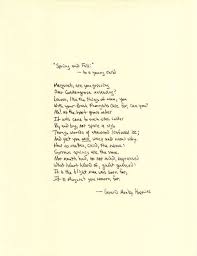 "Spring and Fall:"
– to a young child
Margaret, are you grieving
Over Goldengrove unleaving?
Leaves, like the things of man, you
With your fresh thoughts care for, can you?
Ah! as the heart grows older
It will come to such sights colder
By and by, nor spare a sigh
Though worlds of wanwood leafmeal lie;
And yet you will weep and know why.
Now no matter, child, the name:
Sorrow's springs are the same.
Nor mouth had, no nor mind, expressed
What heart heard of, ghost guessed:
It is the blight man was born for,
It is Margaret you mourn for.
– Gerard Manley Hopkins